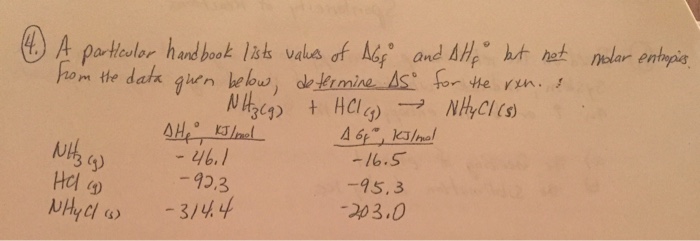 4. A particular handbook lists values of ΔGf° and ΔHf° but not molar entropies.
From the data given below, determine ΔS° for the rxn. :
NH3(g) + HCl(g) → NH4Cl(s)
ΔHf°, KJ/mol ΔGf°, KJ/mol
NH3(g) -46.1 -16.5
HCl(g) -92.3 -95.3
NH4Cl(s) -314.4 -203.0